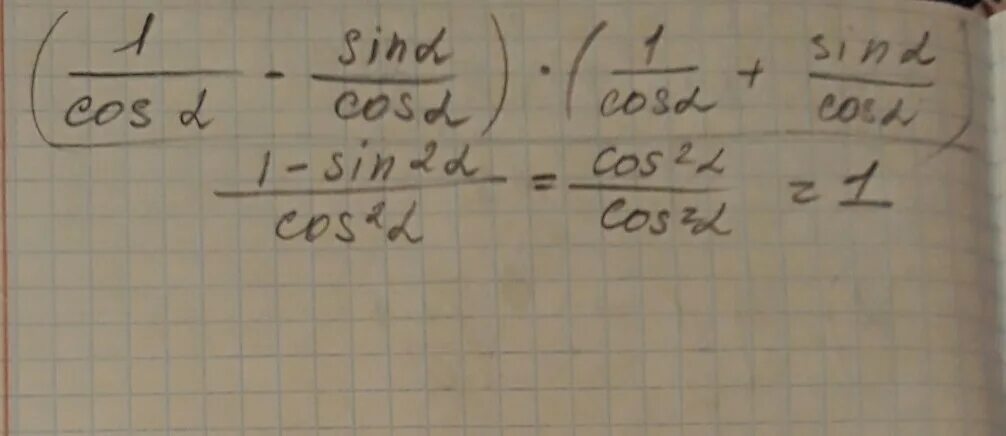 (1/cos α - sin α/cos α) · (1/cos α + sin α/cos α)
1 - sin 2α/cos²α = cos²α/cos²α = 1